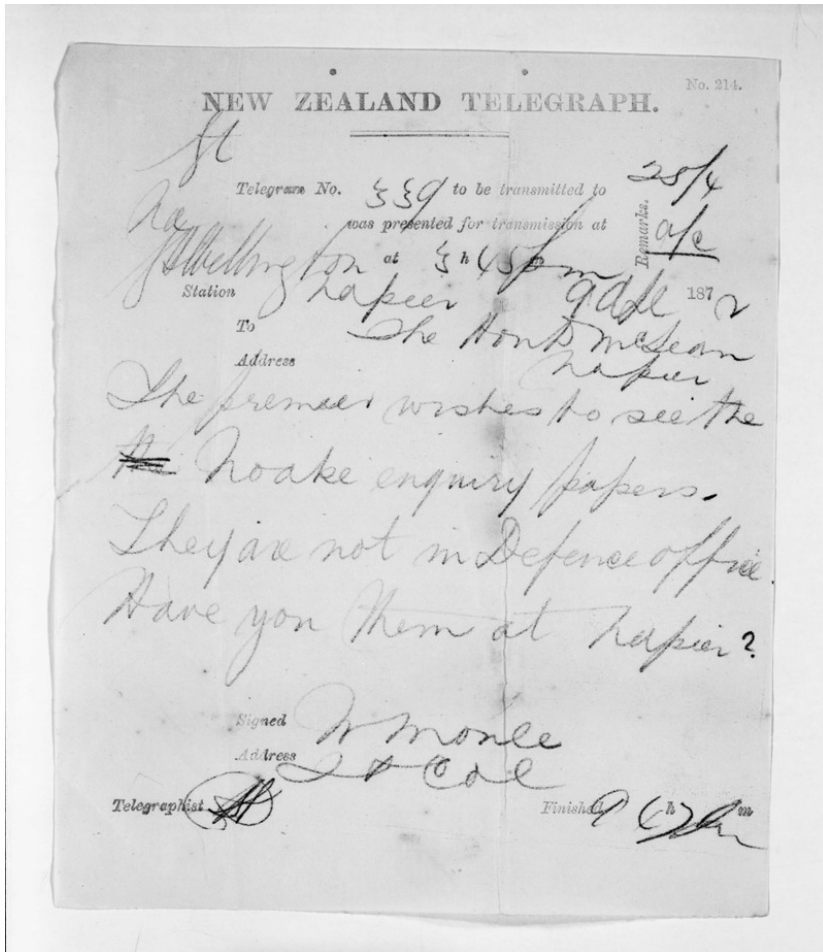 No. 214.
NEW ZEALAND TELEGRAPH.
Telegram No. 339 to be transmitted to
28/4
was presented for transmission at
Remarks.
Wellington at 3 h 45 pm
Station Napier 9 1872
To The Hon D McLean
Address Napier
The premier wishes to see the
Noake enquiry papers.
They are not in Defence office.
Have you them at Napier?
Signed W Moule
Address Lt Col
Telegraphist
Finished h m